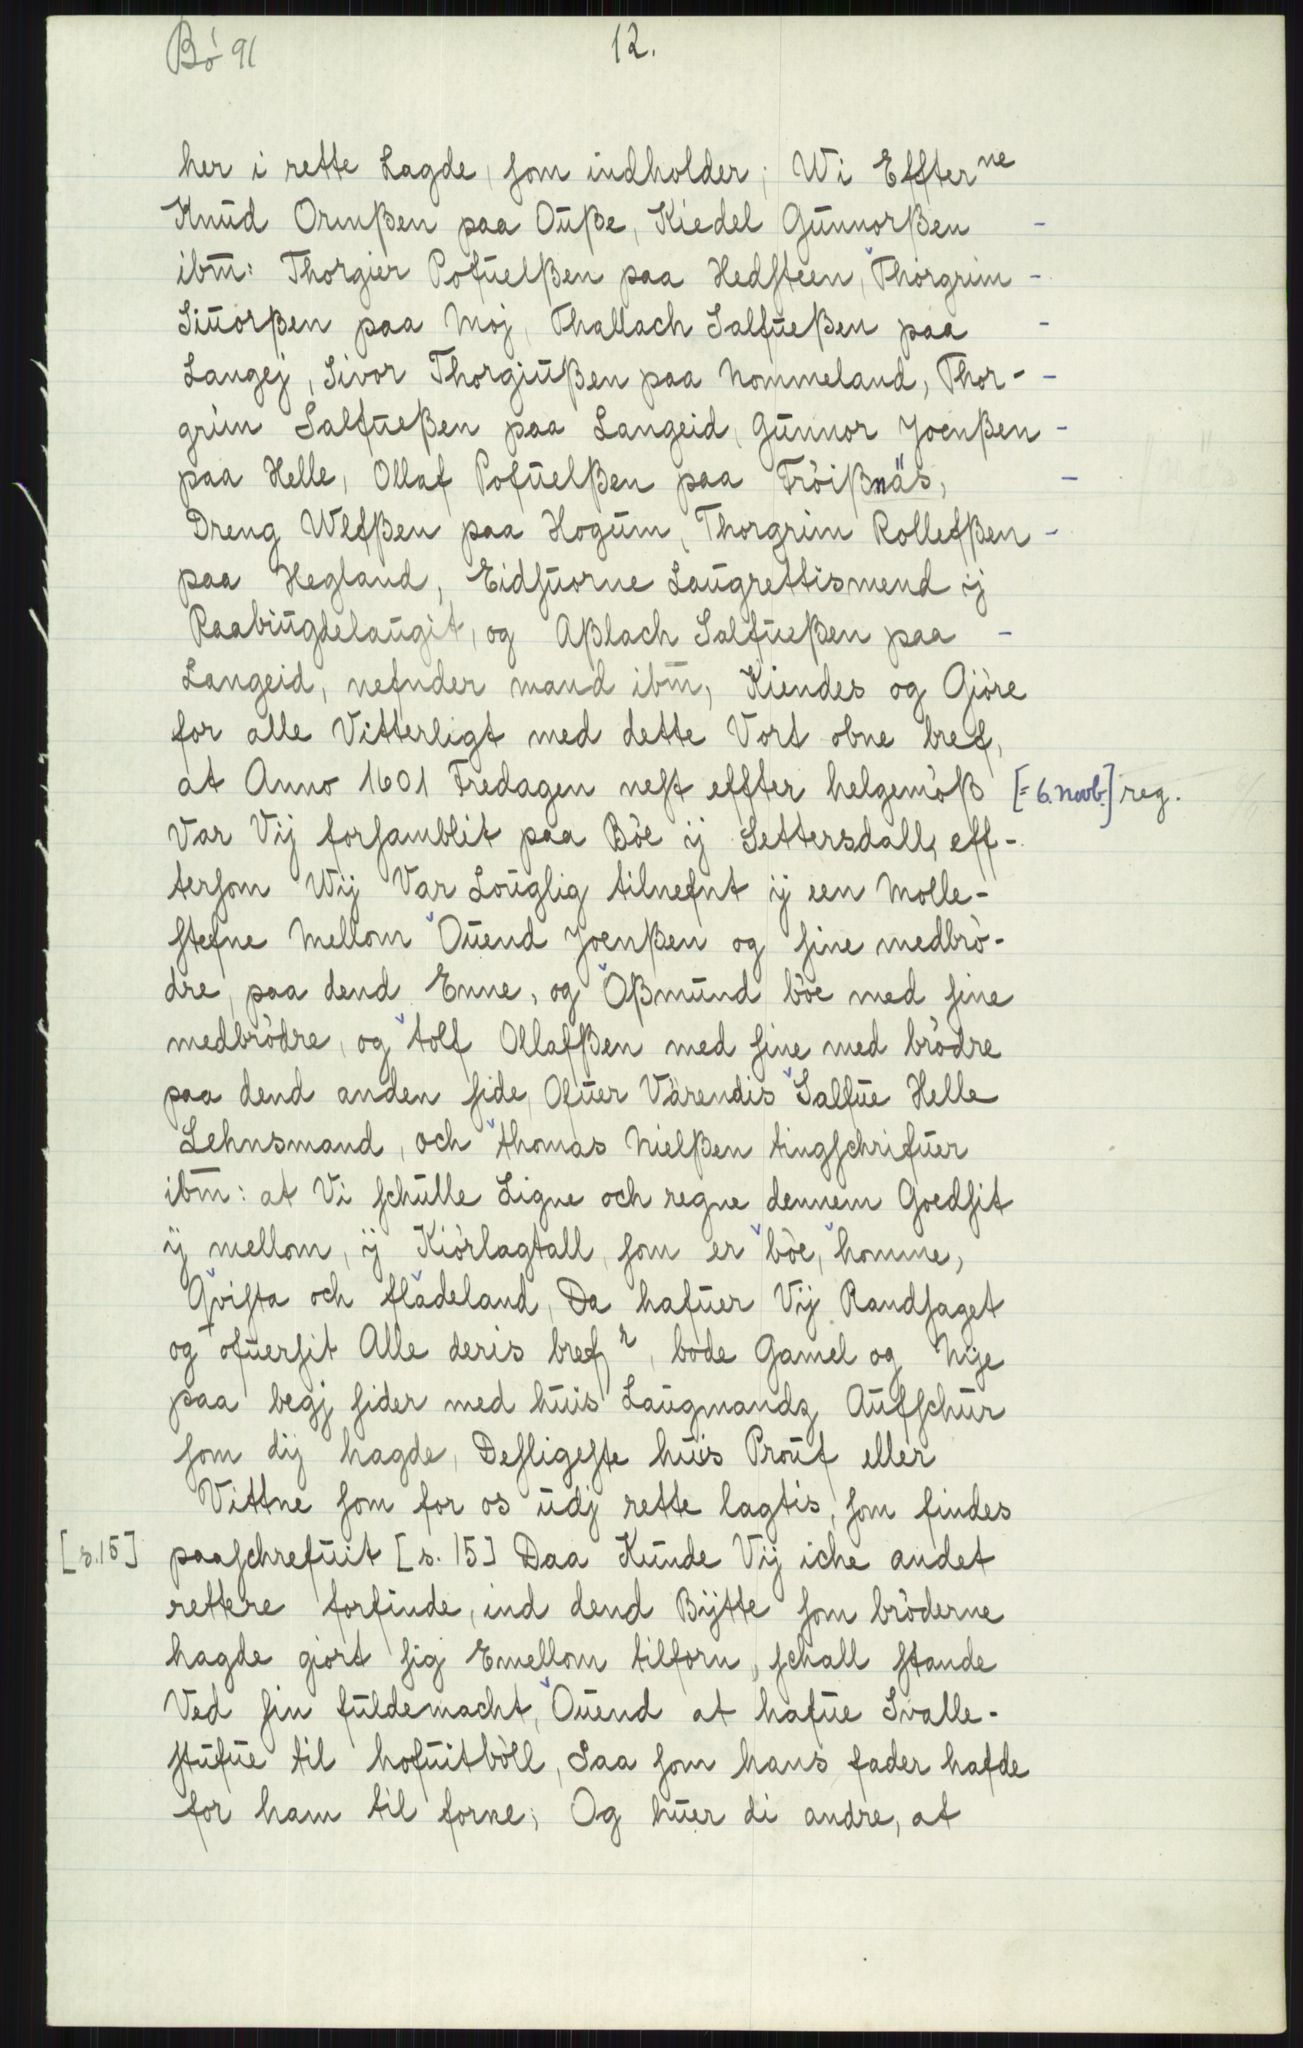 Bò 91
12.
her i rette Lagde, som indholder; Wi Effter ne
Knud Ormßen paa Ouße, Kiedel Gunnorßen -
ibm: Thorgier Pofuelßen paa Hedsteen, Thorgrim -
Siuorßen paa Moj, Thallach Salfueßen paa -
Langej, Sivor Thorgiußen paa Nommeland, Thor- -
grim Salfueßen paa Langeid, Gunnor Joenßen -
paa Helle, Ollaf Pofuelßen paa Fròißnäs, -
Dreng Ulfßen paa Hogum, Thorgrim Rollefßen -
paa Hegland, Eidsuorne Laugrettismend ij
Raabiugdelaugit, og Aßlach Salfueßen paa -
Langeid, nefnder mand ibm, Kiendes og Giòre
for alle Vitterligt med dette Vort obne bref,
at Anno 1601 Fredagen nest effter helgemòß [= 6. novb.] reg.
Var Vij forsamblit paa Bòe ij Settersdall, eff-
tersom Wij Var Louglig tilnefnt ij een Molle-
stefne Mellom Ouend Joenßen og sine medbrò-
dre, paa dend Enne, og Oßmund bòe med sine
medbròdre, og tolf Ollafßen med sine med bròdre
paa dend anden side, Ofuer Värendis Salfue Helle
Lehnsmand, och thomas Nielßen tingschrifuer
ibm: at Vi schulle Ligne och regne dennem Goedsit
ij mellom, ij Kiòrlagtall, som er bòe, homme,
Qvista och flådeland, Da hafuer Vij Randsaget
og ofuersit Alle deris bref r, bode Gamel og Nije
paa begj sider med huis Laugmandz Aufschur
som dij hagde, Desligeste huis Prouf eller
Vittne som for os udj rette lagtis, som findes
[s.15] paaschrefuit [s. 15] Daa Kunde Vij iche andet
rettere forfinde, ind dend Bijtte som bròderne
hagde giort sig Emellom tilforn, schall stande
Ved sin fuldemacht, Ouend at hafue Svalle-
stufue til hofuitbòll, Saa som hans fader hafde
for ham til forne; Og huer di andre, at